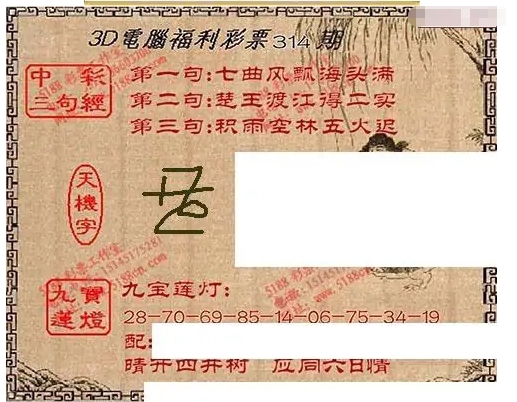 3D電腦福利彩票314期
中彩
三句經
第一句:七曲风飘海头满
第二句:楚王渡江得二实
第三句:积雨空林五火迟
天機字
九寶
蓮燈
九宝莲灯:
28-70-69-85-14-06-75-34-19
配:
晴开四井树 应同六日情